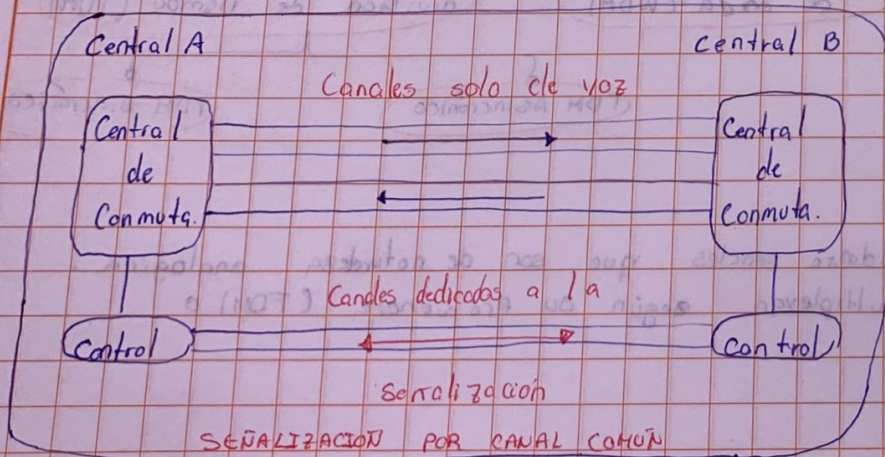 Central A
Central B
Canales solo de voz
Central
de
Conmuta.
Central
de
Conmuta.
Canales dedicados a la
Control
Control
Señalización
SEÑALIZACION POR CANAL COMUN